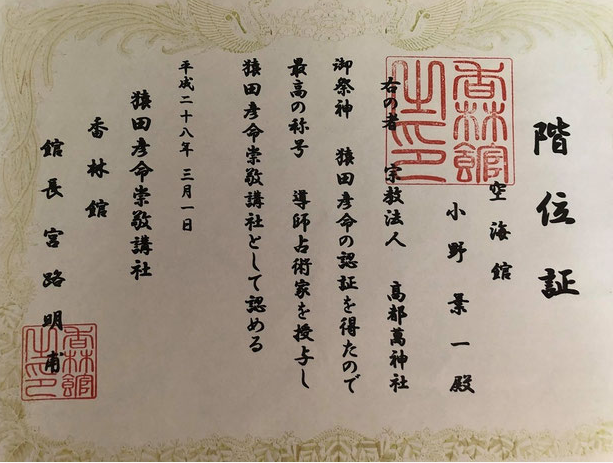 階位証
空海館
小野業一殿
右の者 宗教法人 高都萬神社
御祭神 猿田彦命の認証を得たので
最高の称号 導師占術家を授与し
猿田彦命崇敬講社として認める
平成二十八年 三月一日
猿田彦命崇敬講社
香林館
館長宮路明甫
香林館之印
香林館之印